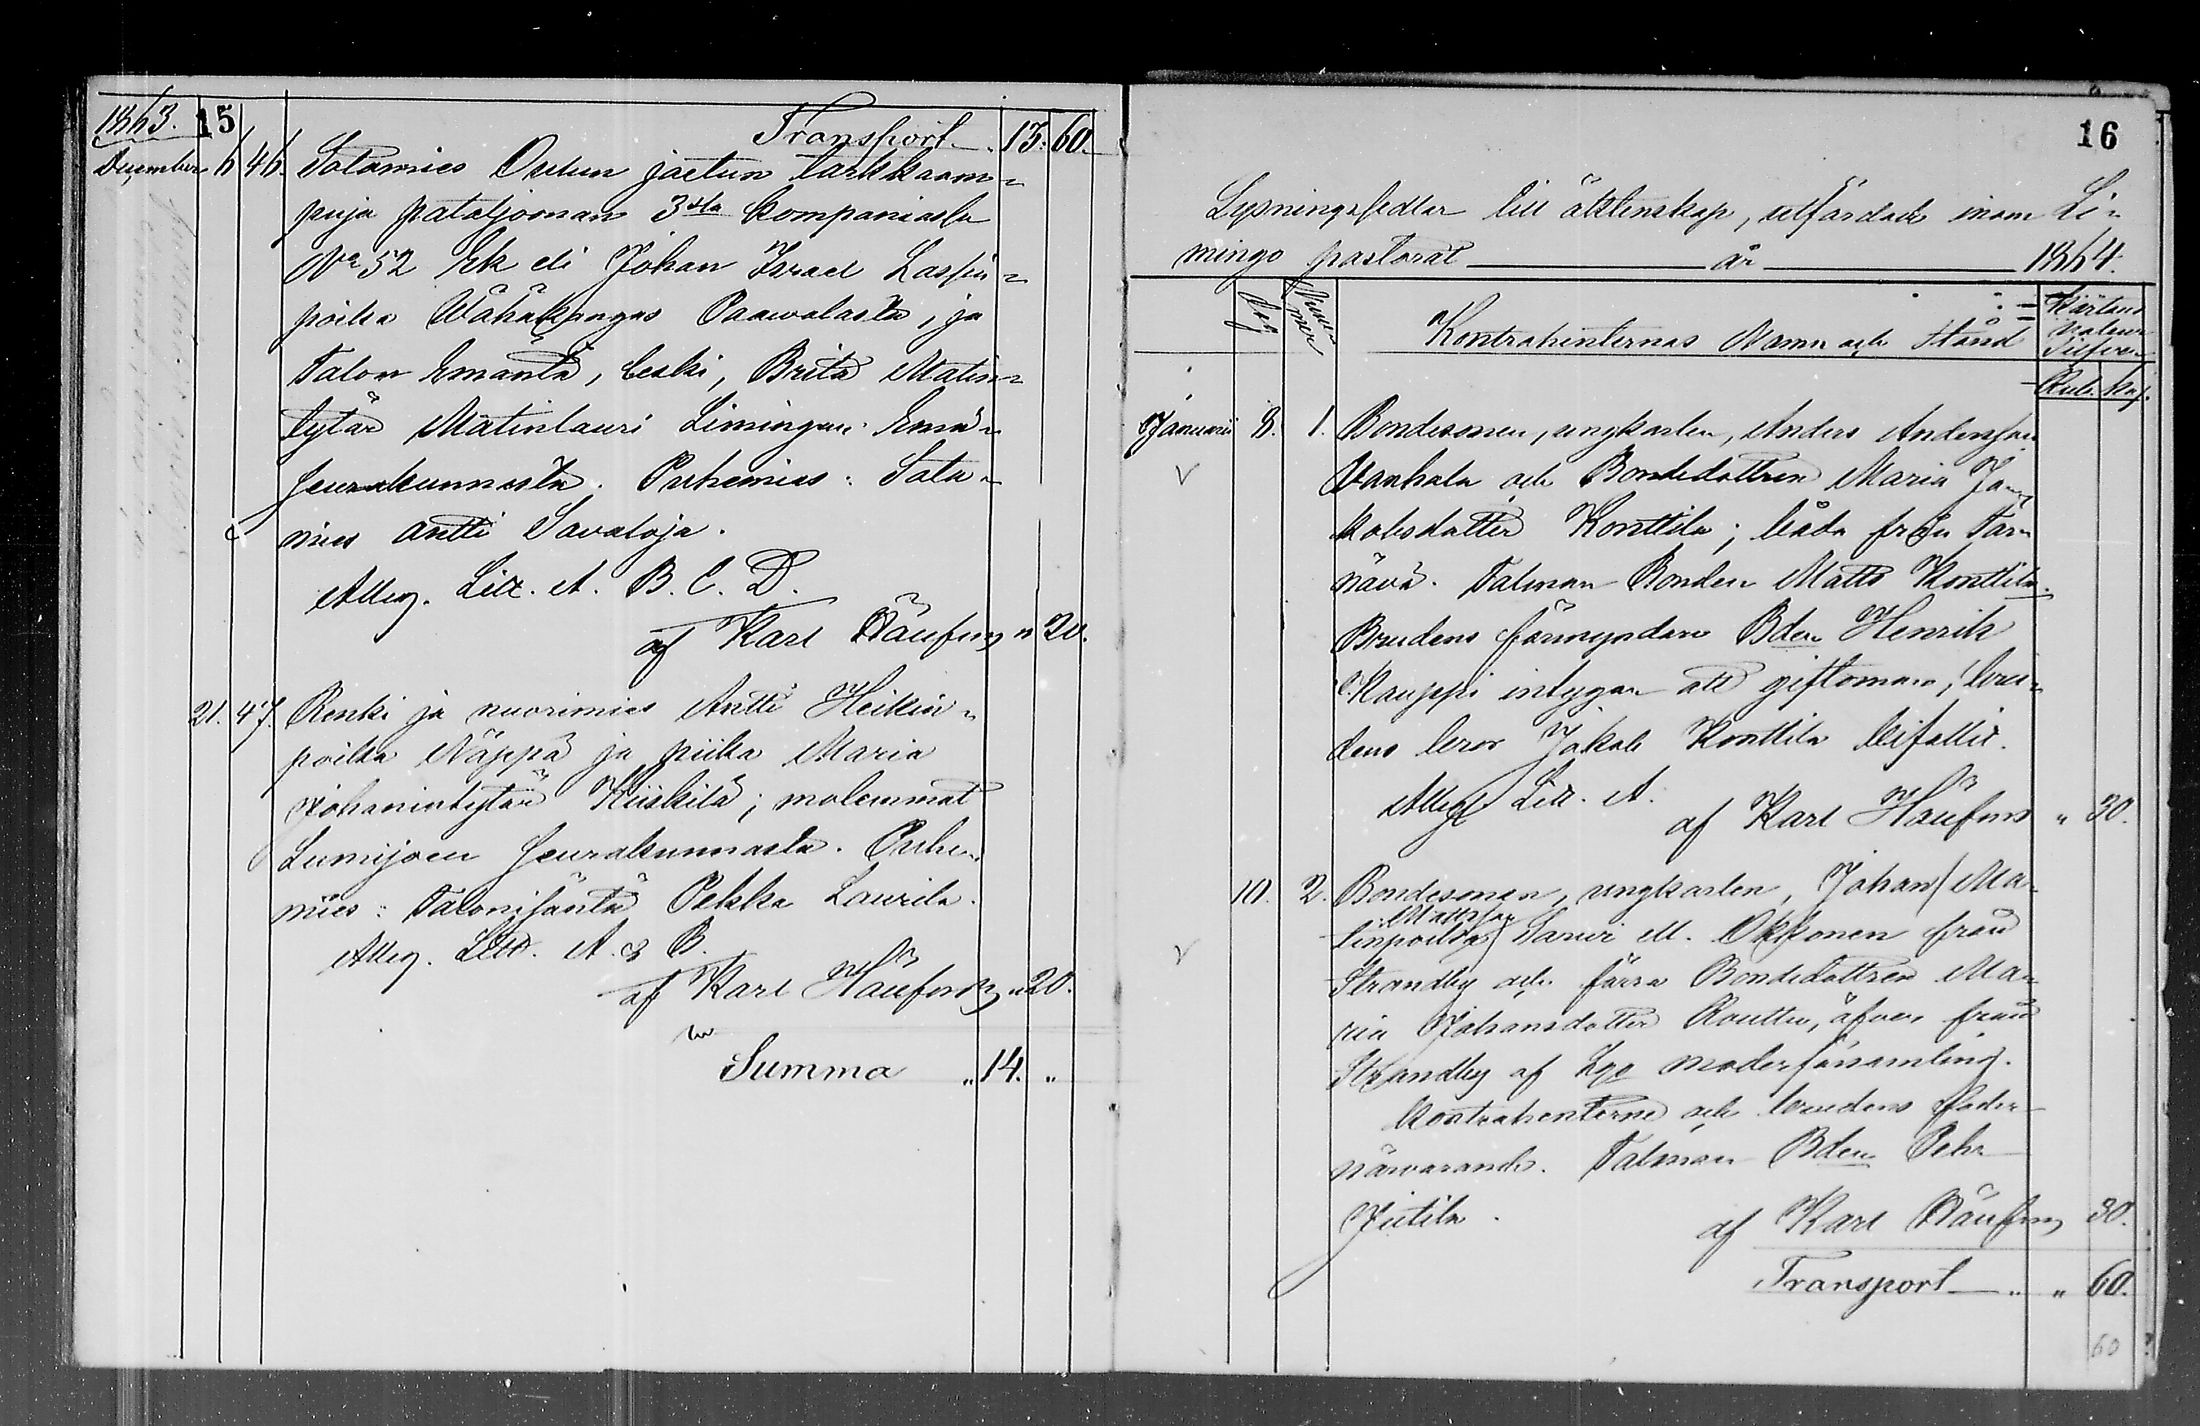 1863. 15
Transport 13. 60.
December 6 46. Sotamies Oulun jaetun tarkkaam-
puja pataljoonan 3sta kompaniasta
No 52 Ek eli Johan Israel Kaspin-
poika Wähäkangas Paawolasta, ja
Talon Emäntä, leski, Brita Matin-
tytär Matinlauri Limingan Emä-
seurakunnasta. Puhemies: Sota-
mies Antti Savaloja.
Alleg. Litt. A. B. C. D.
af Karl Häufers " 20.
21. 47. Renki ja nuorimies Antti Heikin-
poika Näppä ja piika Maria
Johanintytär Kiiskilä; molemmat
Lumijoen seurakunnasta. Puhe-
mies: Talonisäntä Pekka Laurila.
Alleg. Litt. A. & B.
af Karl Häufers " 20.
Summa " 14. "
16
Lysningssedlar till äktenskap, utfärdade inom Li-
mingo pastorat år 1864.
Dag Nummer Kontrahenternas Namn och Stånd
Rub. Kop.
Januarii 8. 1. Bondesonen, ungkarlen, Anders Andersson
Vanhala och Bondedottren Maria Ja-
kobsdotter Konttila; båda från Tor-
näva. Talman Bonden Matts Konttila.
Brudens förmyndare Bden Henrik
Kauppi intygar att giftoman, bru-
dens bror Jakob Konttila bifallit.
Alleg. Litt. A.
af Karl Häufers " 30.
10. 2. Bondesonen, ungkarlen, Johan (Ma-
Mattsson
tinpoika) Sarvi el. Okkonen från
Strandby och förra Bondedottren Ma-
ria Johansdotter Routtu, äfven från
Strandby af Lgo moderförsamling.
Kontrahenterne och brudens fader
närvarande. Talman Bden Pehr
Jutila.
af Karl Häufers 30.
Transport " " 60.
60